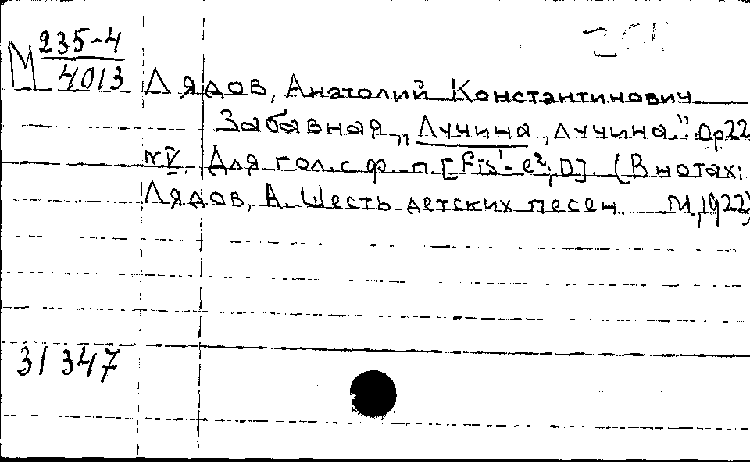 М 235-4
4013
Лядов, Анатолий Константинович
Забавная „Лучина, лучина" Op 22
№ V. Для гол. с ф.-п. [fis¹- e²; D]. (В нотах:
Лядов, А. Шесть детских песен М., 1922)
31 347